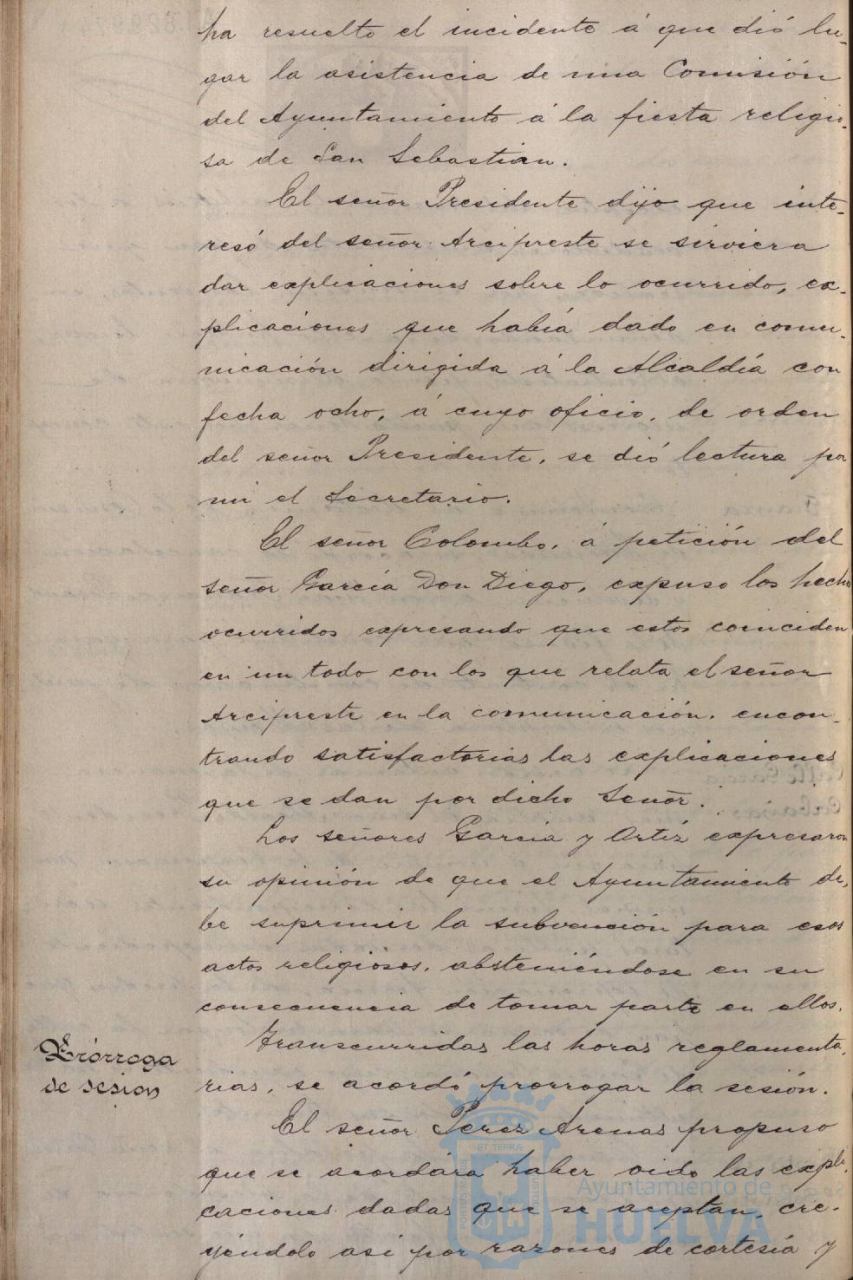 ha resuelto el incidente á que dió lu-
gar la asistencia de una Comisión
del Ayuntamiento á la fiesta religio-
sa de San Sebastian.
El señor Presidente dijo que inte-
resó del señor Arcipreste se sirviera
dar explicaciones sobre lo ocurrido, ex-
plicaciones que había dado en comu-
nicación dirigida á la Alcaldía con
fecha ocho, á cuyo oficio, de orden
del señor Presidente, se dió lectura por
mi el Secretario.
El señor Colombo, á petición del
señor García Don Diego, expuso los hechos
ocurridos expresando que estos coinciden
en un todo con los que relata el señor
Arcipreste en la comunicación, encon-
trando satisfactorias las explicaciones
que se dan por dicho Señor.
Los señores García y Ortíz expresaron
su opinión de que el Ayuntamiento de-
be suprimir la subvención para esos
actos religiosos, absteniéndose en su
consecuencia de tomar parte en ellos.
Prórroga
de sesion
Transcurridas las horas reglamenta-
rias, se acordó prorrogar la sesión.
El señor Perez Arenas propuso
que se acordára haber oido las expli-
caciones dadas que se aceptan, cre-
yéndolo asi por razones de cortesía y
Ayuntamiento de
HUELVA